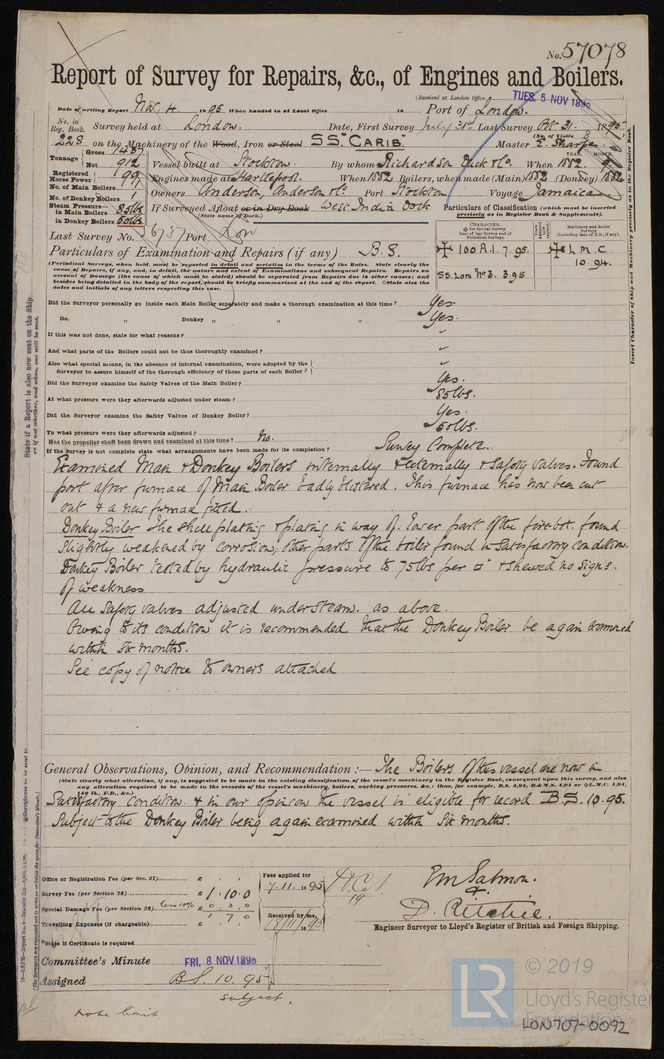 No. 57078
Report of Survey for Repairs, &c., of Engines and Boilers.
(Received at London Office TUES. 5 NOV 1895
Date of writing Report Nov. 4 1895 When handed in at Local Office 18 Port of London.
No. in Reg. Book. Survey held at London. Date, First Survey July 31st Last Survey Oct 31. 1895
(No. of Visits
228 on the Machinery of the Wood, Iron or Steel S.S. CARIB. Master E. Sharpe
Tonnage Gross
Net 912 Vessel built at Stockton By whom Richardson Duck & Co. When 1882
Registered Horse Power 99 Engines made at Hartlepool. When 1882 Boilers, when made (Main) 1882 (Donkey) 1882
No. of Main Boilers Owners Anderson, Anderson & Co. Port Stockton Voyage Jamaica
No. of Donkey Boilers
Steam Pressure in Main Boilers 85lbs If Surveyed Afloat or in Dry Dock West India Dock
(State name of Dock.)
in Donkey Boilers 50lbs
Particulars of Classification (which must be inserted precisely as in Register Book & Supplements).
Last Survey No. Port Lon
Particulars of Examination and Repairs (if any) B.S.
100 A.1. 7.95.
L.M.C. 10.94.
SS. Lon No 3. 3.95
Did the Surveyor personally go inside each Main Boiler separately and make a thorough examination at this time? Yes.
Do. " Donkey " " " " Yes.
If this was not done, state for what reasons? "
And what parts of the Boilers could not be thus thoroughly examined? "
Also what special means, in the absence of internal examination, were adopted by the
Surveyor to assure himself of the thorough efficiency of those parts of each Boiler? "
Did the Surveyor examine the Safety Valves of the Main Boiler? Yes.
At what pressure were they afterwards adjusted under steam? 85lbs.
Did the Surveyor examine the Safety Valves of Donkey Boiler? Yes.
To what pressure were they afterwards adjusted? 50lbs.
Has the propeller shaft been drawn and examined at this time? No.
If the Survey is not complete state what arrangements have been made for its completion? Survey Complete.
Examined Main & Donkey Boilers internally & externally & safety valves. Found
port after furnace of Main Boiler badly blistered. This furnace has now been cut
out & a new furnace fitted.
Donkey Boiler The shell plating & plating in way of lower part of the fore bot. found
slightly weakened by corrosion; other parts of the boiler found in satisfactory condition.
Donkey Boiler tested by hydraulic pressure to 75lbs per □" & shewed no signs
of weakness
All safety valves adjusted under steam. as above.
Owing to its condition it is recommended that the Donkey Boiler be again examined
within six months.
See copy of notice to owners attached
General Observations, Opinion, and Recommendation :— The Boilers of this vessel are now in
(State clearly what alteration, if any, is suggested to be made in the existing classification of the vessel's machinery in the Register Book, consequent upon this survey, and also
any alteration required to be made in the records of the vessel's machinery, boilers, working pressures, &c.: thus, for example, B.S. 4,94, B.&M.S. 4,94 or L.M.C. 4,94,
Satisfactory Condition & in our opinion the vessel is eligible for record B.S. 10.95.
Subject to the Donkey Boiler being again examined within six months.
Office or Registration Fee (per Sec. 27) £ : :
Survey Fee (per Section 28) £ 1.10.0
Special Damage Fee (per Section 28) less 10% £ 0.3.0
1 7 0
Travelling Expenses (if chargeable) £ : :
Fees applied for
7.11.1895
Received by me,
18/11/1895
E.M. Salmon.
&
D. Ritchie.
Engineer Surveyor to Lloyd's Register of British and Foreign Shipping.
State if Certificate is required
Committee's Minute FRI. 8 NOV 1895
Assigned B.S. 10.95
subject.
note limit
LR
© 2019
Lloyd's Register
Foundation
LON707-0092